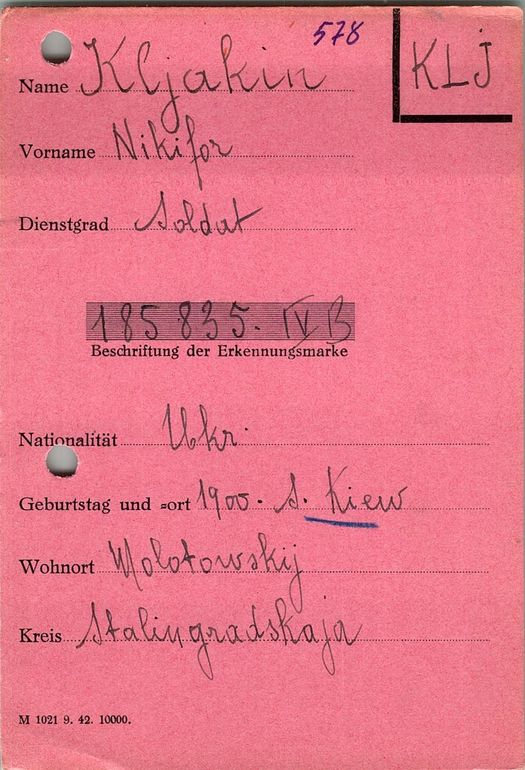 578
KLJ
Name Kljakin
Vorname Nikifor
Dienstgrad Soldat
185 835. IV B
Beschriftung der Erkennungsmarke
Nationalität Ukr.
Geburtstag und =ort 1900. S. Kiew
Wohnort Molotowskij
Kreis Stalingradskaja
M 1021 9. 42. 10000.